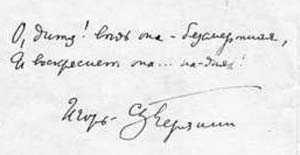 О, дитя! ведь она - безсмертная,
И воскреснет она... на-днях!
Игорь-Северянин